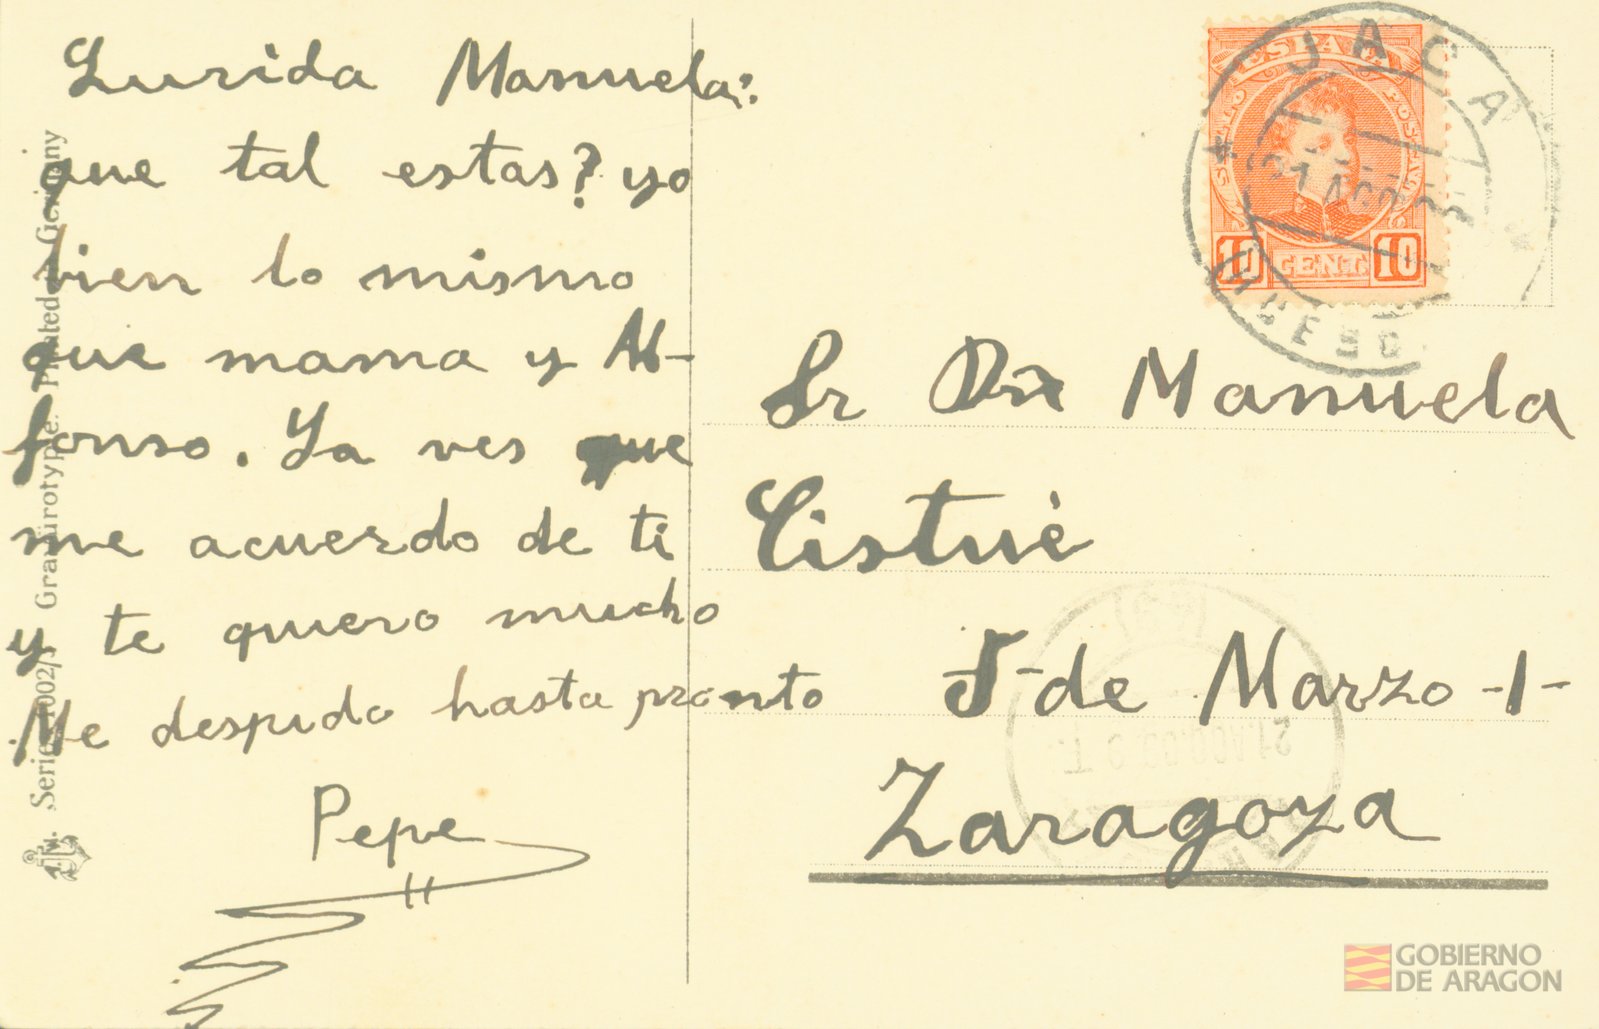 Lurida Manuela:
que tal estas? yo
bien lo mismo
que mama y Al-
fonso. Ya ves que
me acuerdo de ti
y te quiero mucho
Me despido hasta pronto
Pepe
Serie 1002/3 Gravürotypie. Printed in Germany
ESPAÑA
10 CENT. 10
JACA
21 AGO
HUESC
Sr Dña Manuela
Cistué
5-de Marzo-1-
Zaragoza
21 AGO 09 2 T
GOBIERNO
DE ARAGON